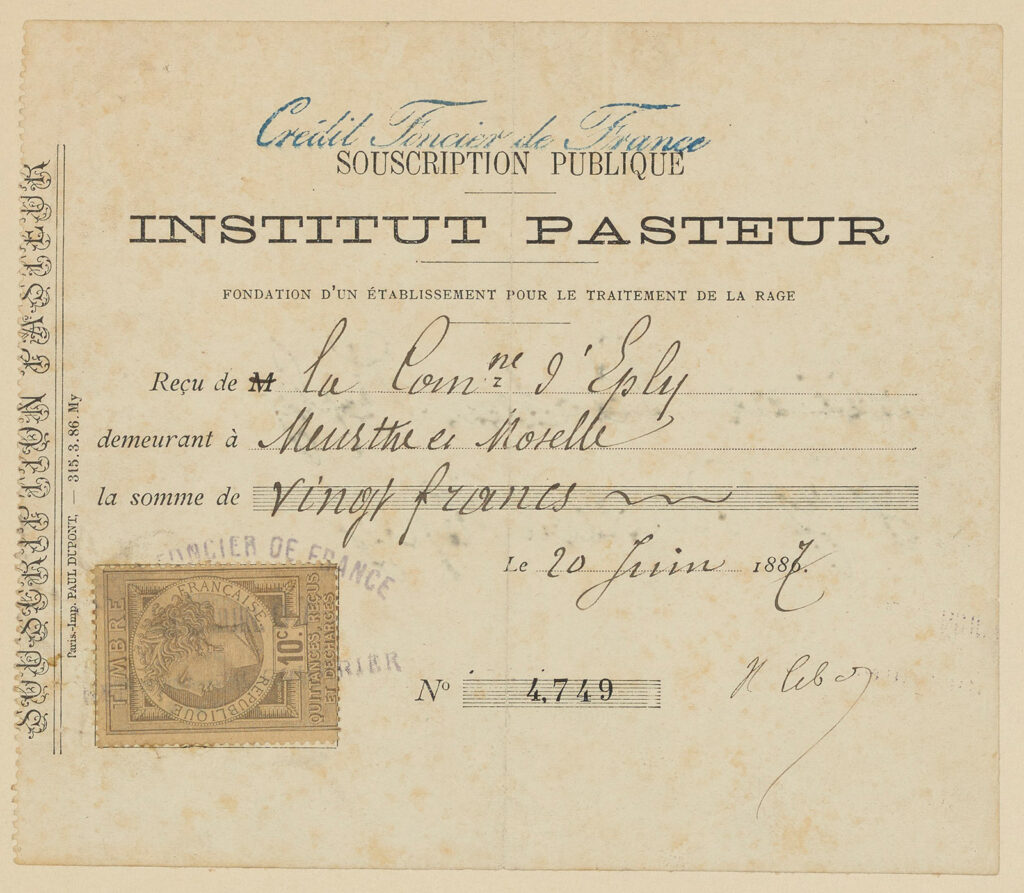 Crédit Foncier de France
SOUSCRIPTION PUBLIQUE
INSTITUT PASTEUR
FONDATION D'UN ÉTABLISSEMENT POUR LE TRAITEMENT DE LA RAGE
Reçu de M la Comne d'Eply
demeurant à Meurthe et Moselle
la somme de vingt francs
Le 20 Juin 1887.
No 4,749
SOUSCRIPTION PASTEUR
Paris.-Imp. PAUL DUPONT, — 315.3.86.My
FONCIER DE FRANCE
TIMBRE
RÉPUBLIQUE FRANÇAISE
10c.
QUITTANCES, REÇUS
ET DÉCHARGES